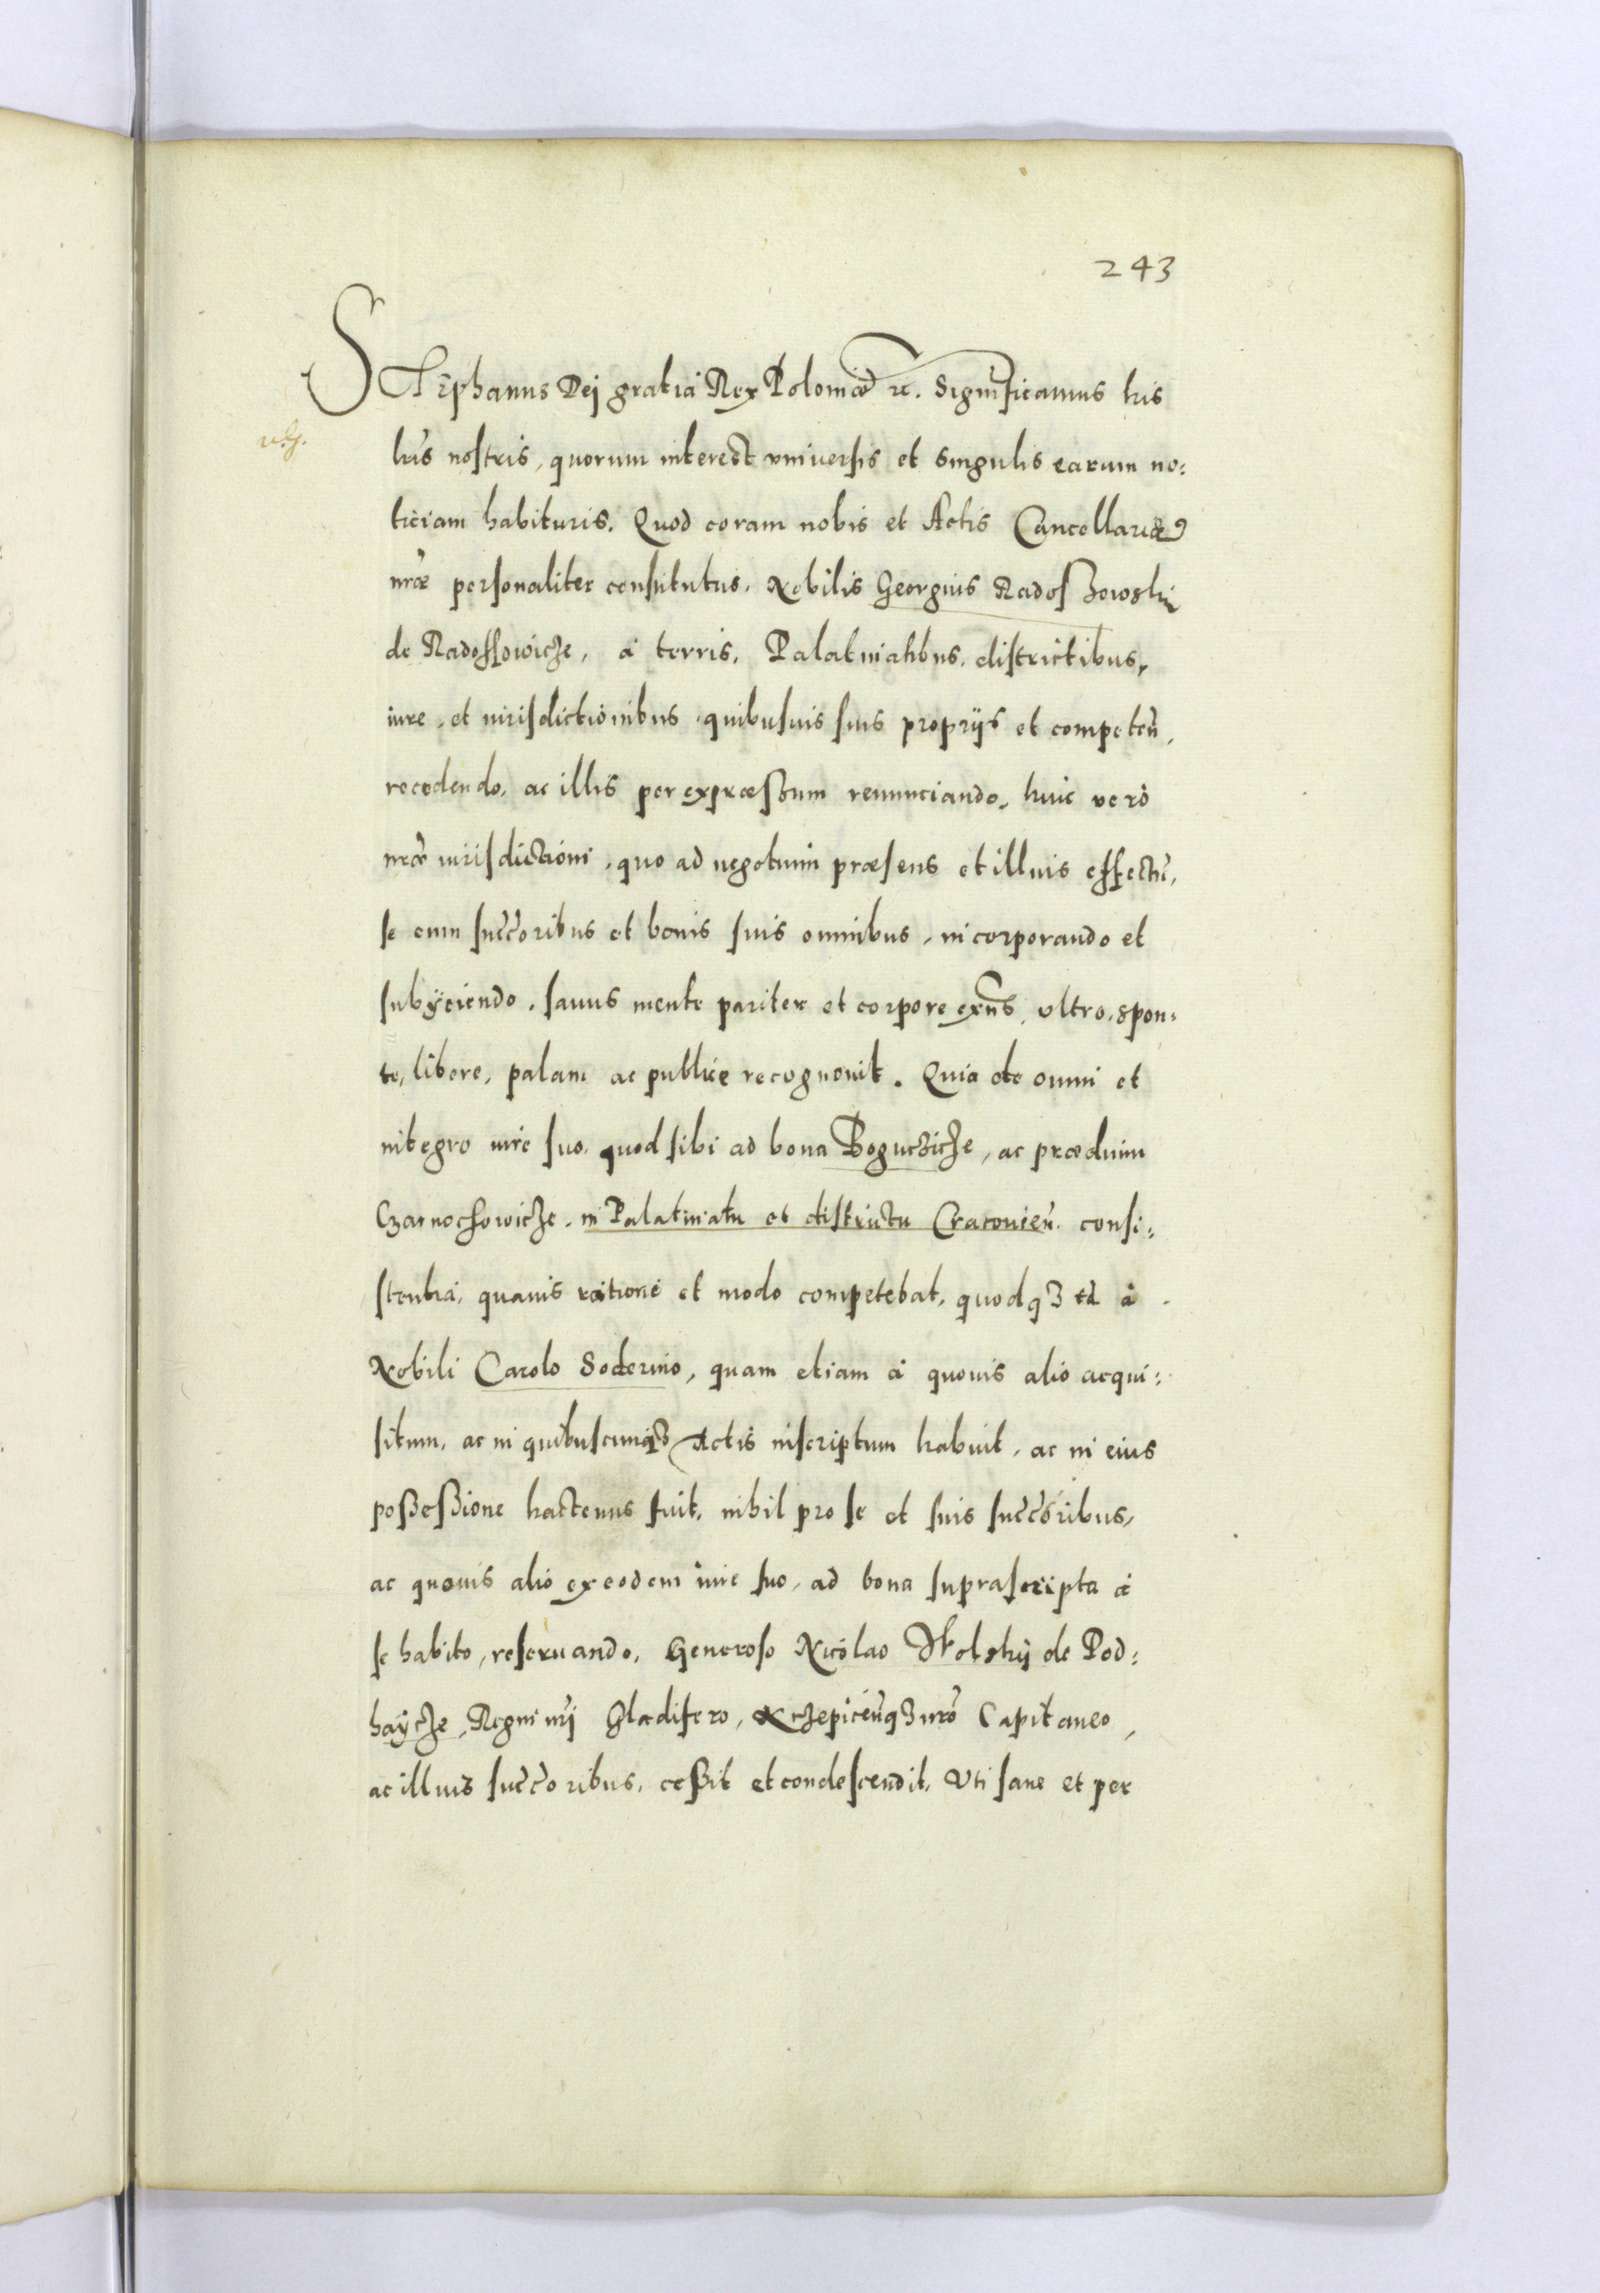 243
Stephanus Dej gratia Rex Poloniæ etc. Significamus his
lr̃is nostris, quorum interest vniuersis et singulis earum no:
ticiam habituris. Quod coram nobis et Actis Cancellariæ
nr̃æ personaliter constitutus. Nobilis Georgius Radoszowskj
de Radoſſowicze, à terris, Palatinatibus, districtibus,
iure, et iurisdictionibus quibusuis suis proprijs et competeñ,
recedendo, ac illis per expræssum renunciando, huic verò
nr̃æ iurisdictioni, quo ad negotium præsens et illius effectũ,
se cum succ̃oribus et bonis suis omnibus, incorporando et
subÿciendo, sanus mente pariter et corpore exñs, vltro, spon:
te, libere, palam ac publice recognouit. Quia de omni et
integro iure suo, quod sibi ad bona Boguczicze, ac prædium
Czarnochowicze, in Palatinatu et districtu Cracouieñ. consi:
stentia, quauis ratione et modo competebat, quodq3 tã à
Nobili Carolo Soderino, quam etiam à quouis alio acqui:
situm, ac in quibuscunq3 Actis inscriptum habuit, ac in eius
possessione hactenus fuit, nihil pro se et suis succ̃oribus,
ac quouis alio ex eodem iure suo, ad bona suprascripta à
se habito, reseruando, Generoso Nicolao Wolskij de Pod:
haÿcze, Regni nr̃i Gladifero, Krzepiceñq3 nr̃o Capitaneo,
ac illius succ̃oribus, cessit et condescendit, Vti sane et per